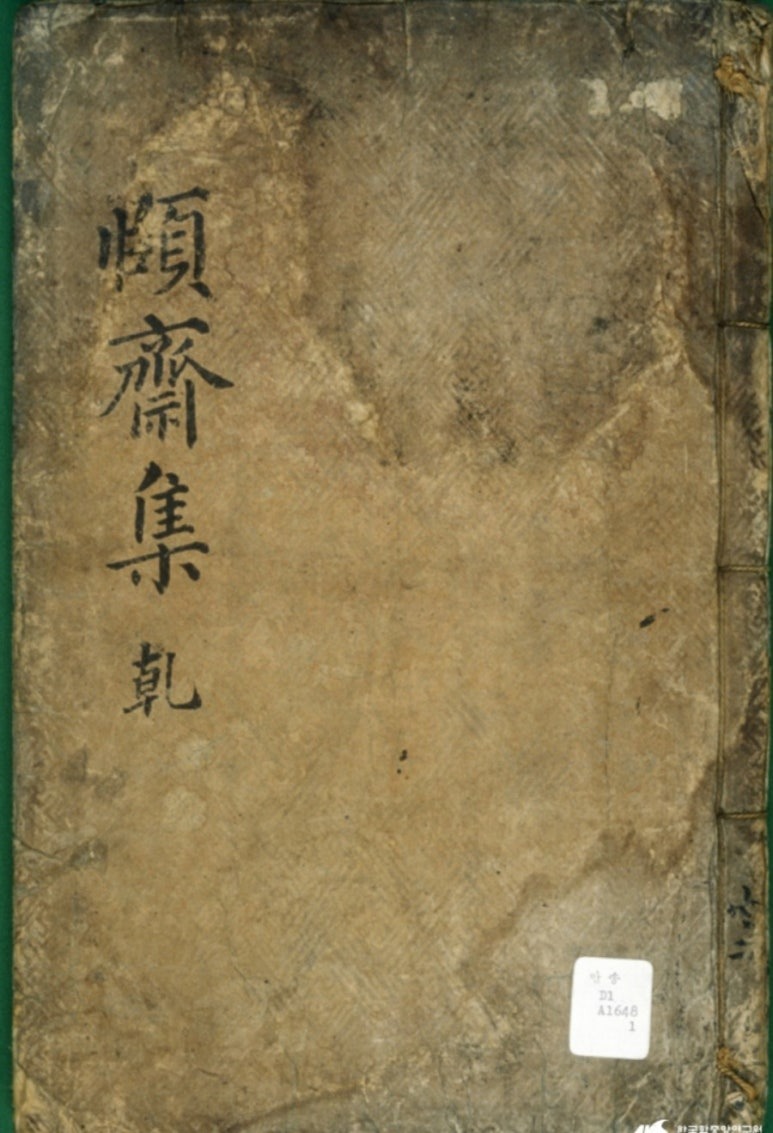 頤齋集 乾
共二
만송
D1
A1648
1
한국학중앙연구원